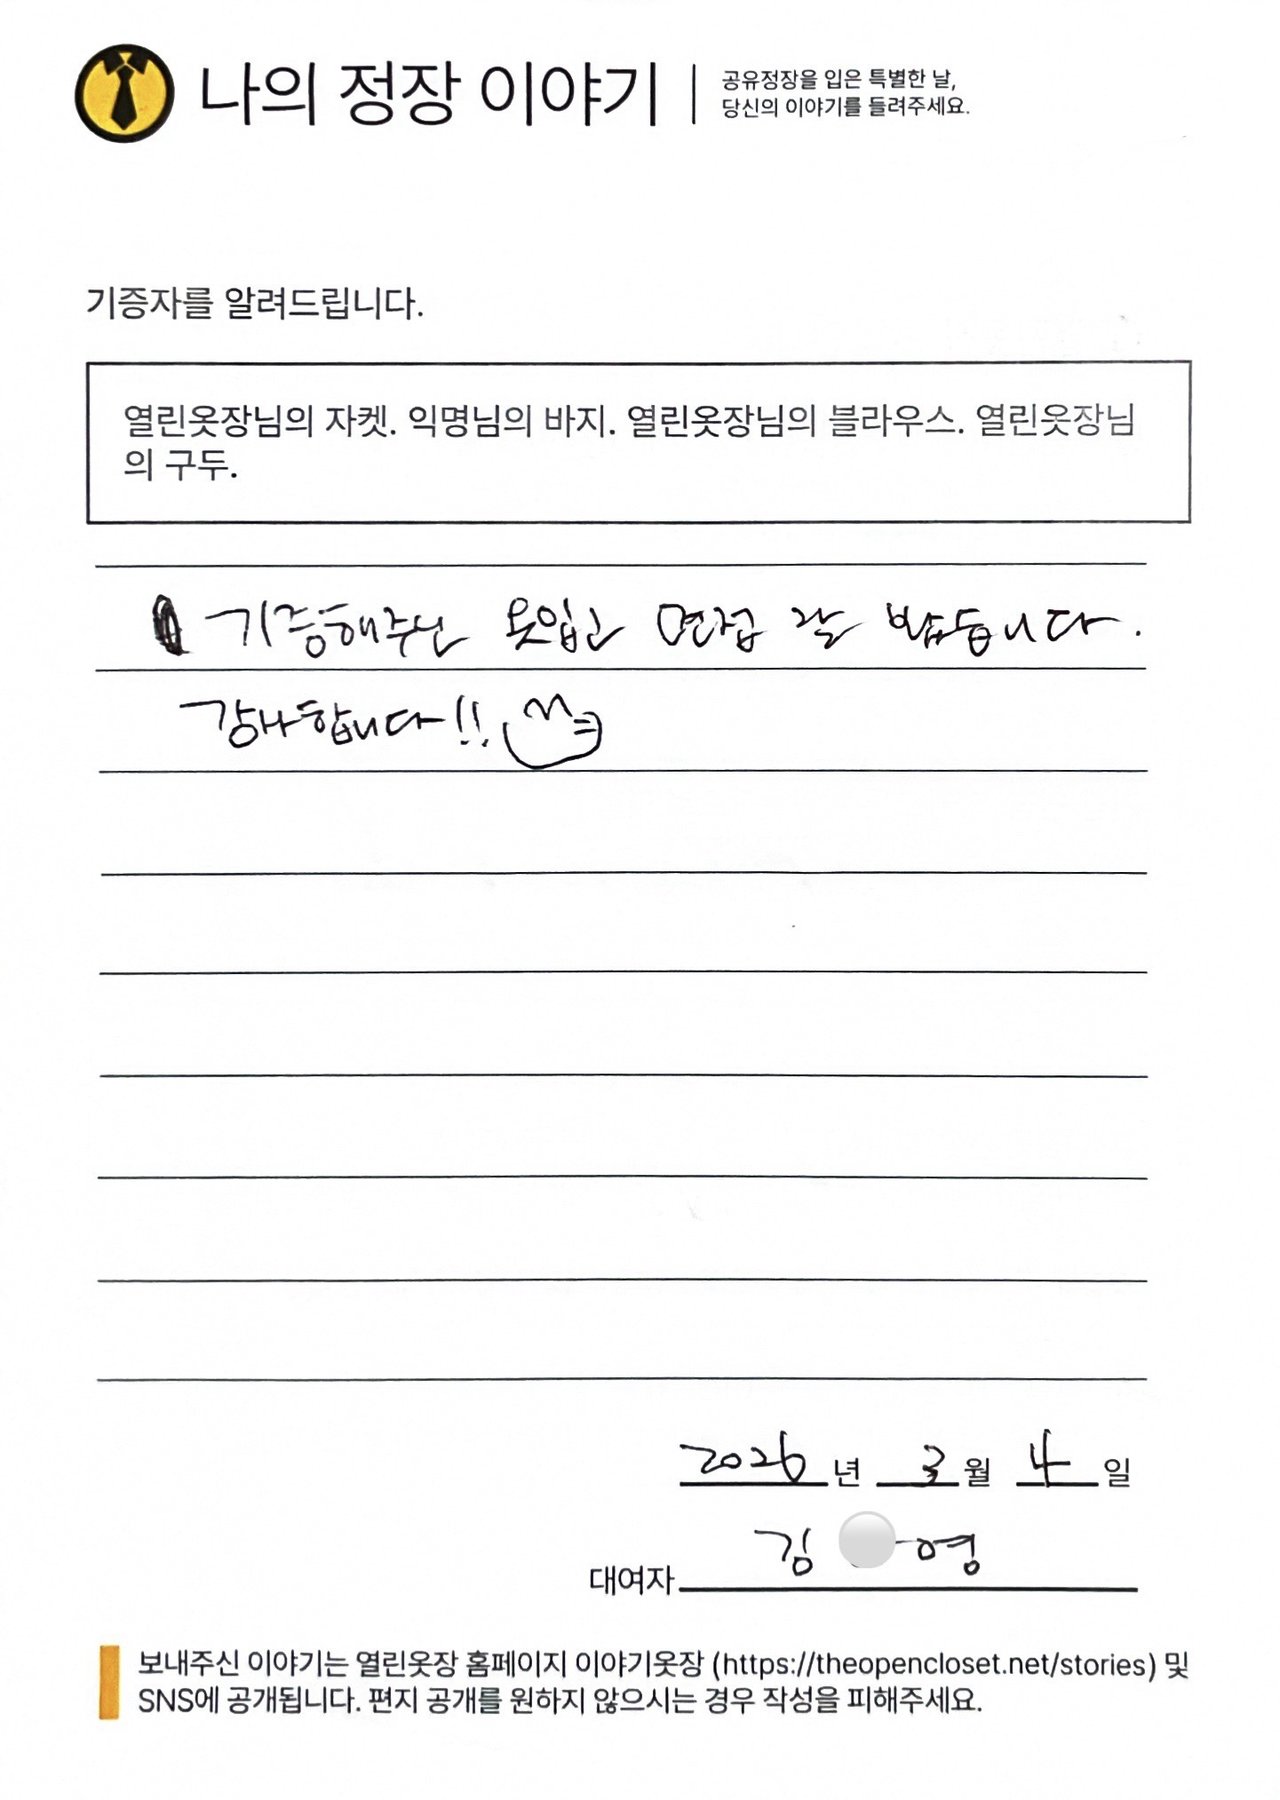 나의 정장 이야기
공유정장을 입은 특별한 날,
당신의 이야기를 들려주세요.
기증자를 알려드립니다.
열린옷장님의 자켓. 익명님의 바지. 열린옷장님의 블라우스. 열린옷장님
의 구두.
기증해주신 옷입고 면접 잘 봤습니다.
감사합니다!!
2026년 3월 4일
대여자 김 영
보내주신 이야기는 열린옷장 홈페이지 이야기옷장 (https://theopencloset.net/stories) 및
SNS에 공개됩니다. 편지 공개를 원하지 않으시는 경우 작성을 피해주세요.